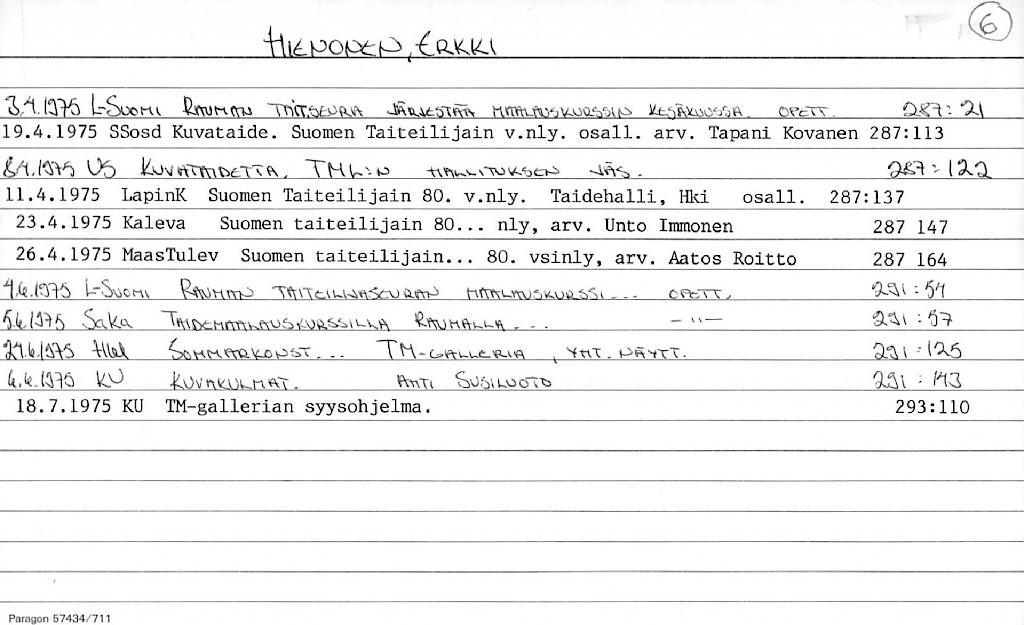 6
HIENONEN, ERKKI
3.4.1975 L-SUOMI RAUMAN TAIT.SEURA JÄRJESTÄÄ MAALAUSKURSSIN KESÄKUUSSA. OPETT. 287:21
19.4.1975 SSosd Kuvataide. Suomen Taiteilijain v.nly. osall. arv. Tapani Kovanen 287:113
8.4.1975 US KUVATAIDETTA. TML:N HALLITUKSEN JÄS. 287:122
11.4.1975 LapinK Suomen Taiteilijain 80. v.nly. Taidehalli, Hki osall. 287:137
23.4.1975 Kaleva Suomen taiteilijain 80... nly, arv. Unto Immonen 287 147
26.4.1975 MaasTulev Suomen taiteilijain... 80. vsinly, arv. Aatos Roitto 287 164
4.6.1975 L-SUOMI RAUMAN TAITEILIJASEURAN MAALAUSKURSSI... OPETT. 291:54
5.6.1975 SaKa TAIDEMAALAUSKURSSILLA RAUMALLA... -"- 291:57
24.6.1975 Hbl SOMMARKONST... TM-GALLERIA, YHT. NÄYTT. 291:125
6.6.1975 KU KUVAKULMAT. AHTI SUSILUOTO 291:143
18.7.1975 KU TM-gallerian syysohjelma. 293:110
Paragon 57434/711